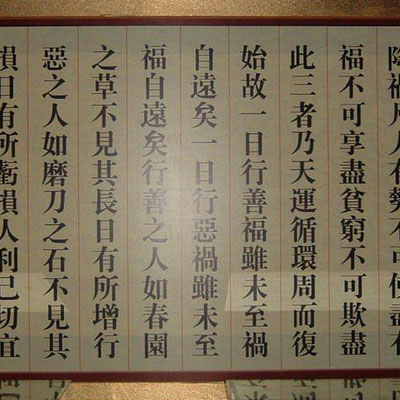 降禍凡人有勢不可使盡有
福不可享盡貧窮不可欺盡
此三者乃天運循環周而復
始故一日行善福雖未至禍
自遠矣一日行惡禍雖未至
福自遠矣行善之人如春園
之草不見其長日有所增行
惡之人如磨刀之石不見其
損日有所虧損人利己切宜